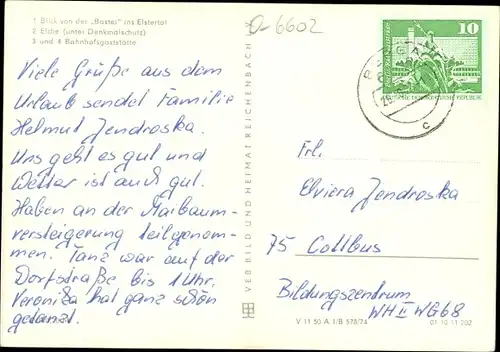 1 Blick von der „Bastei" ins Elstertal
2 Eibe (unter Denkmalschutz)
3 und 4 Bahnhofsgaststätte
Viele Grüße aus dem
Urlaub sendet Familie
Helmut Jendroska.
Uns geht es gut und
Wetter ist auch gut.
Haben an der Maibaum-
versteigerung teilgenom-
men. Tanz war auf der
Dorfstraße bis 1 Uhr,
Veronika hat ganz schön
getanzt.
VEB BILD UND HEIMAT REICHENBACH
V 11 50 A 1/B 578/74
01 10 11 202
D-6602
10
Frl.
Elviera Jendroska
75 Cottbus
Bildungszentrum
WH II WG 68